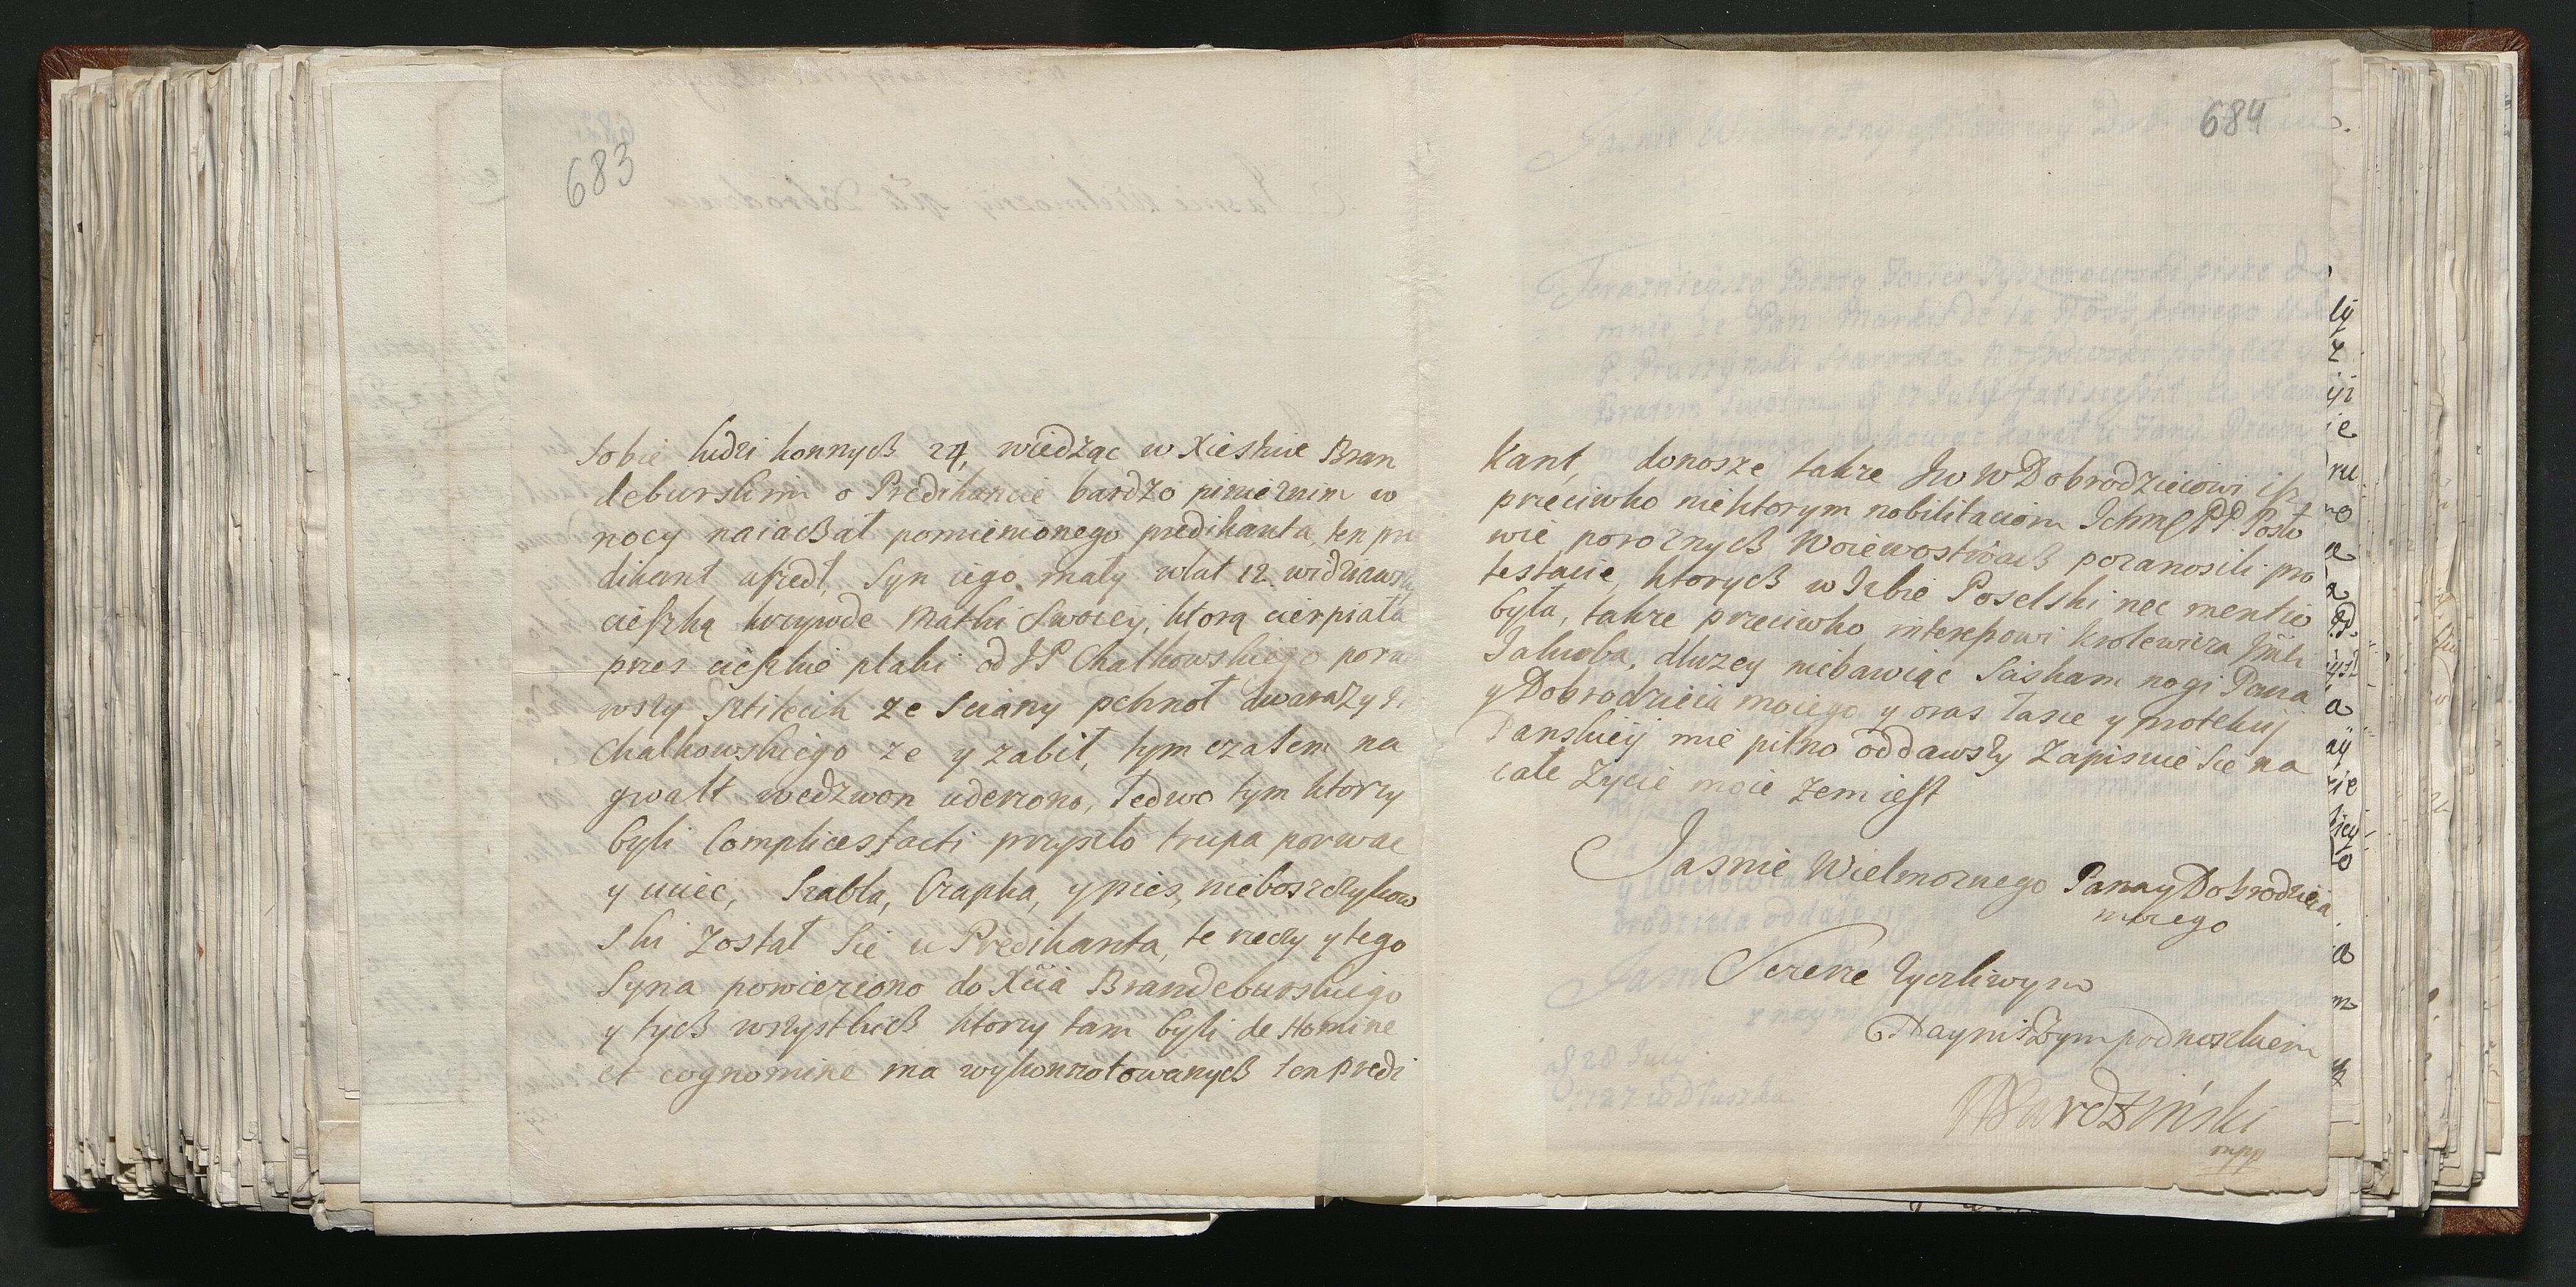 683
sobie ludzi konnych 24, wiedząc w Xiestwie Bran
deburskim o Predikancie bardzo pinieznim w
nocy naiachał pomienionego predikanta, ten pre
dikant uszedł, Syn iego mały wlat 12. widziawszy
cieszką krzywde Matki Swoiey, ktorą cierpiała
przes cieszkie plahi od JP Chalkowskiego pora
wszy Sztilecik ze Sciany pchnoł dwarazy
Chalkowskiego ze y zabił, tym czasem na
gwałt wedzwon uderzono, Ledwo tym ktorzy
byli Complices facti przyszło trupa porwac
y uciec, Szabla, Czapka, y pies, nieboszczykow
ski został Sie u Predikanta, te rzeczy y tego
Syna powieziono do Xcia Brandeburskiego
y tych wszystkich ktorzy tam byli de Nomine
et cognomine ma wykonnotowanych ten predi
684
kant, donosze takze Jwo W Dobrodzieiowi isz
przeciwko niektorym nobilitaciom Ichmć PP Posło
wie poroznych Woiewostwach pozanosili pro
testacie, ktorych w Izbie Poselski nec mentio
była, takze przeciwko interessowi Krolewicza Jmći
Jakuba, dluzey niebawiąc Sciskam nogi Pana
y Dobrodzieia moiego y oras łasce y protekcyi
Panskieij mie pilno oddawszy Zapisuie Sie na
całe Zycie moie zem iest
Jasnie Wielmoznego Pana y Dobrodzieia
mojego
Szczerze Zyczliwym
Nayniszszym podnoszkiem
Bardziński
mpp